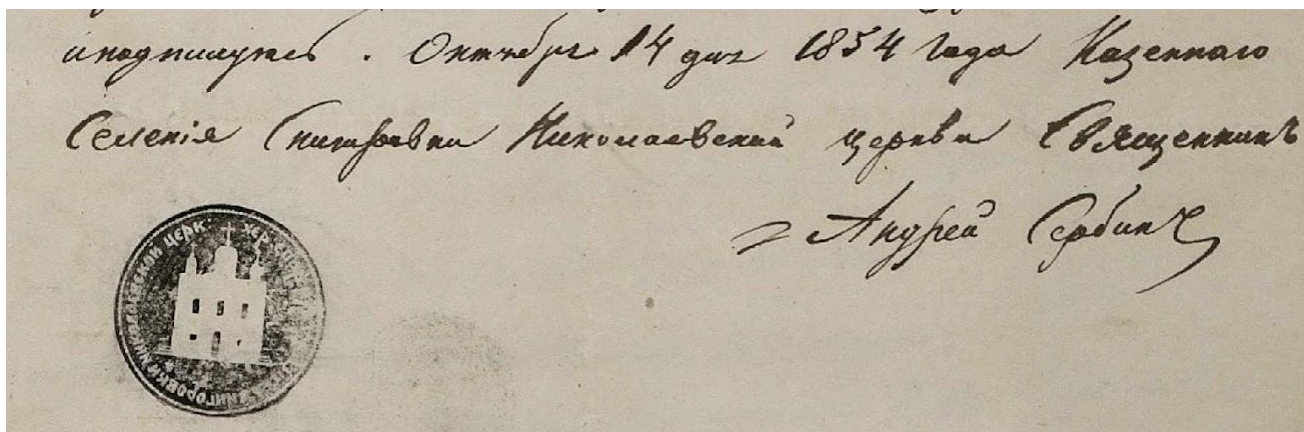 и подпишусь. Октября 14 дня 1854 года Казеннаго
Селенія Снигиревки Николаевской церкви Священникъ
Андрей Сербинъ
НИКОЛАЕВСКОЙ ЦЕРК.